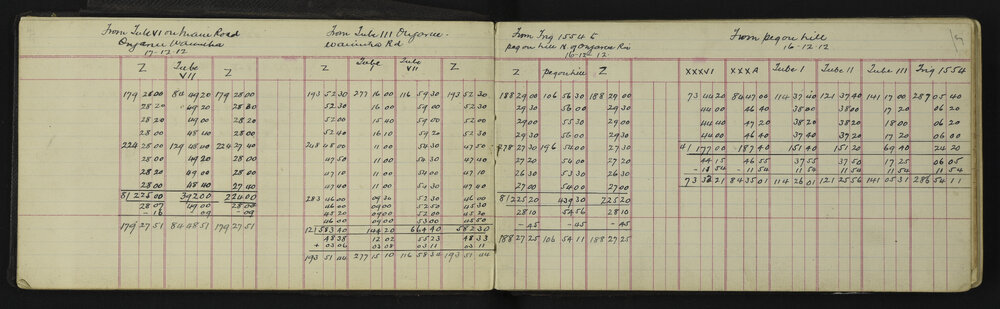 From Tube VI on Main Road
Ongarue Waimiha
17-12-12
Z Tube VII Z
179 28 00 84 49 20 179 28 00
28 20 49 20 28 20
28 20 49 00 28 20
28 00 48 40 28 00
224 28 00 129 48 40 224 27 40
28 00 49 20 28 00
28 20 49 00 28 00
28 00 48 40 27 40
8) 225 00 392 00 224 00
28 07 49 00 28 00
- 16 09 - 09
179 27 51 84 48 51 179 27 51
From Tube III Ongarue-
Waimiha Rd
Z Tube I Tube VII Z
193 52 30 277 16 00 116 59 30 193 52 30
52 30 16 00 59 00 52 30
52 00 15 40 59 00 52 00
52 40 16 10 59 20 52 30
248 48 00 11 00 54 30 47 50
47 50 11 00 54 30 47 40
47 50 11 00 54 00 47 10
47 40 11 00 54 30 47 40
283 46 00 09 30 52 30 46 00
46 00 09 30 52 00 45 30
45 20 09 00 52 00 45 20
46 00 09 00 53 00 45 50
12) 583 40 144 20 664 40 582 30
48 38 12 02 55 23 48 33
+ 03 06 03 08 03 11 03 11
193 51 44 277 15 10 116 58 34 193 51 44
From Trig 1554 to
pegon hill N. of Ongarue Riv
16-12-12
Z pegon hill Z
188 29 00 106 56 30 188 29 00
29 30 56 00 29 30
29 00 55 30 29 00
29 30 56 00 29 30
278 27 30 196 54 00 27 30
27 20 54 00 27 20
26 30 53 30 26 30
27 00 54 00 27 00
8) 225 20 439 30 225 20
28 10 54 56 28 10
- 45 - 45 - 45
188 27 25 106 54 11 188 27 25
From pegon hill
16-12-12
XXXVI XXXA Tube I Tube II Tube III Trig 1554
73 44 20 84 47 00 114 37 40 121 37 40 141 17 00 287 05 40
44 00 46 40 38 00 38 00 17 20 06 20
44 40 47 20 38 20 38 20 18 00 06 20
44 00 46 40 37 40 37 20 17 20 06 00
4) 177 00 187 40 151 40 151 20 69 40 24 20
44 15 46 55 37 55 37 50 17 25 06 05
- 11 54 - 11 54 11 54 11 54 11 54 11 54
73 32 21 84 35 01 114 26 01 121 25 56 141 05 31 286 54 11